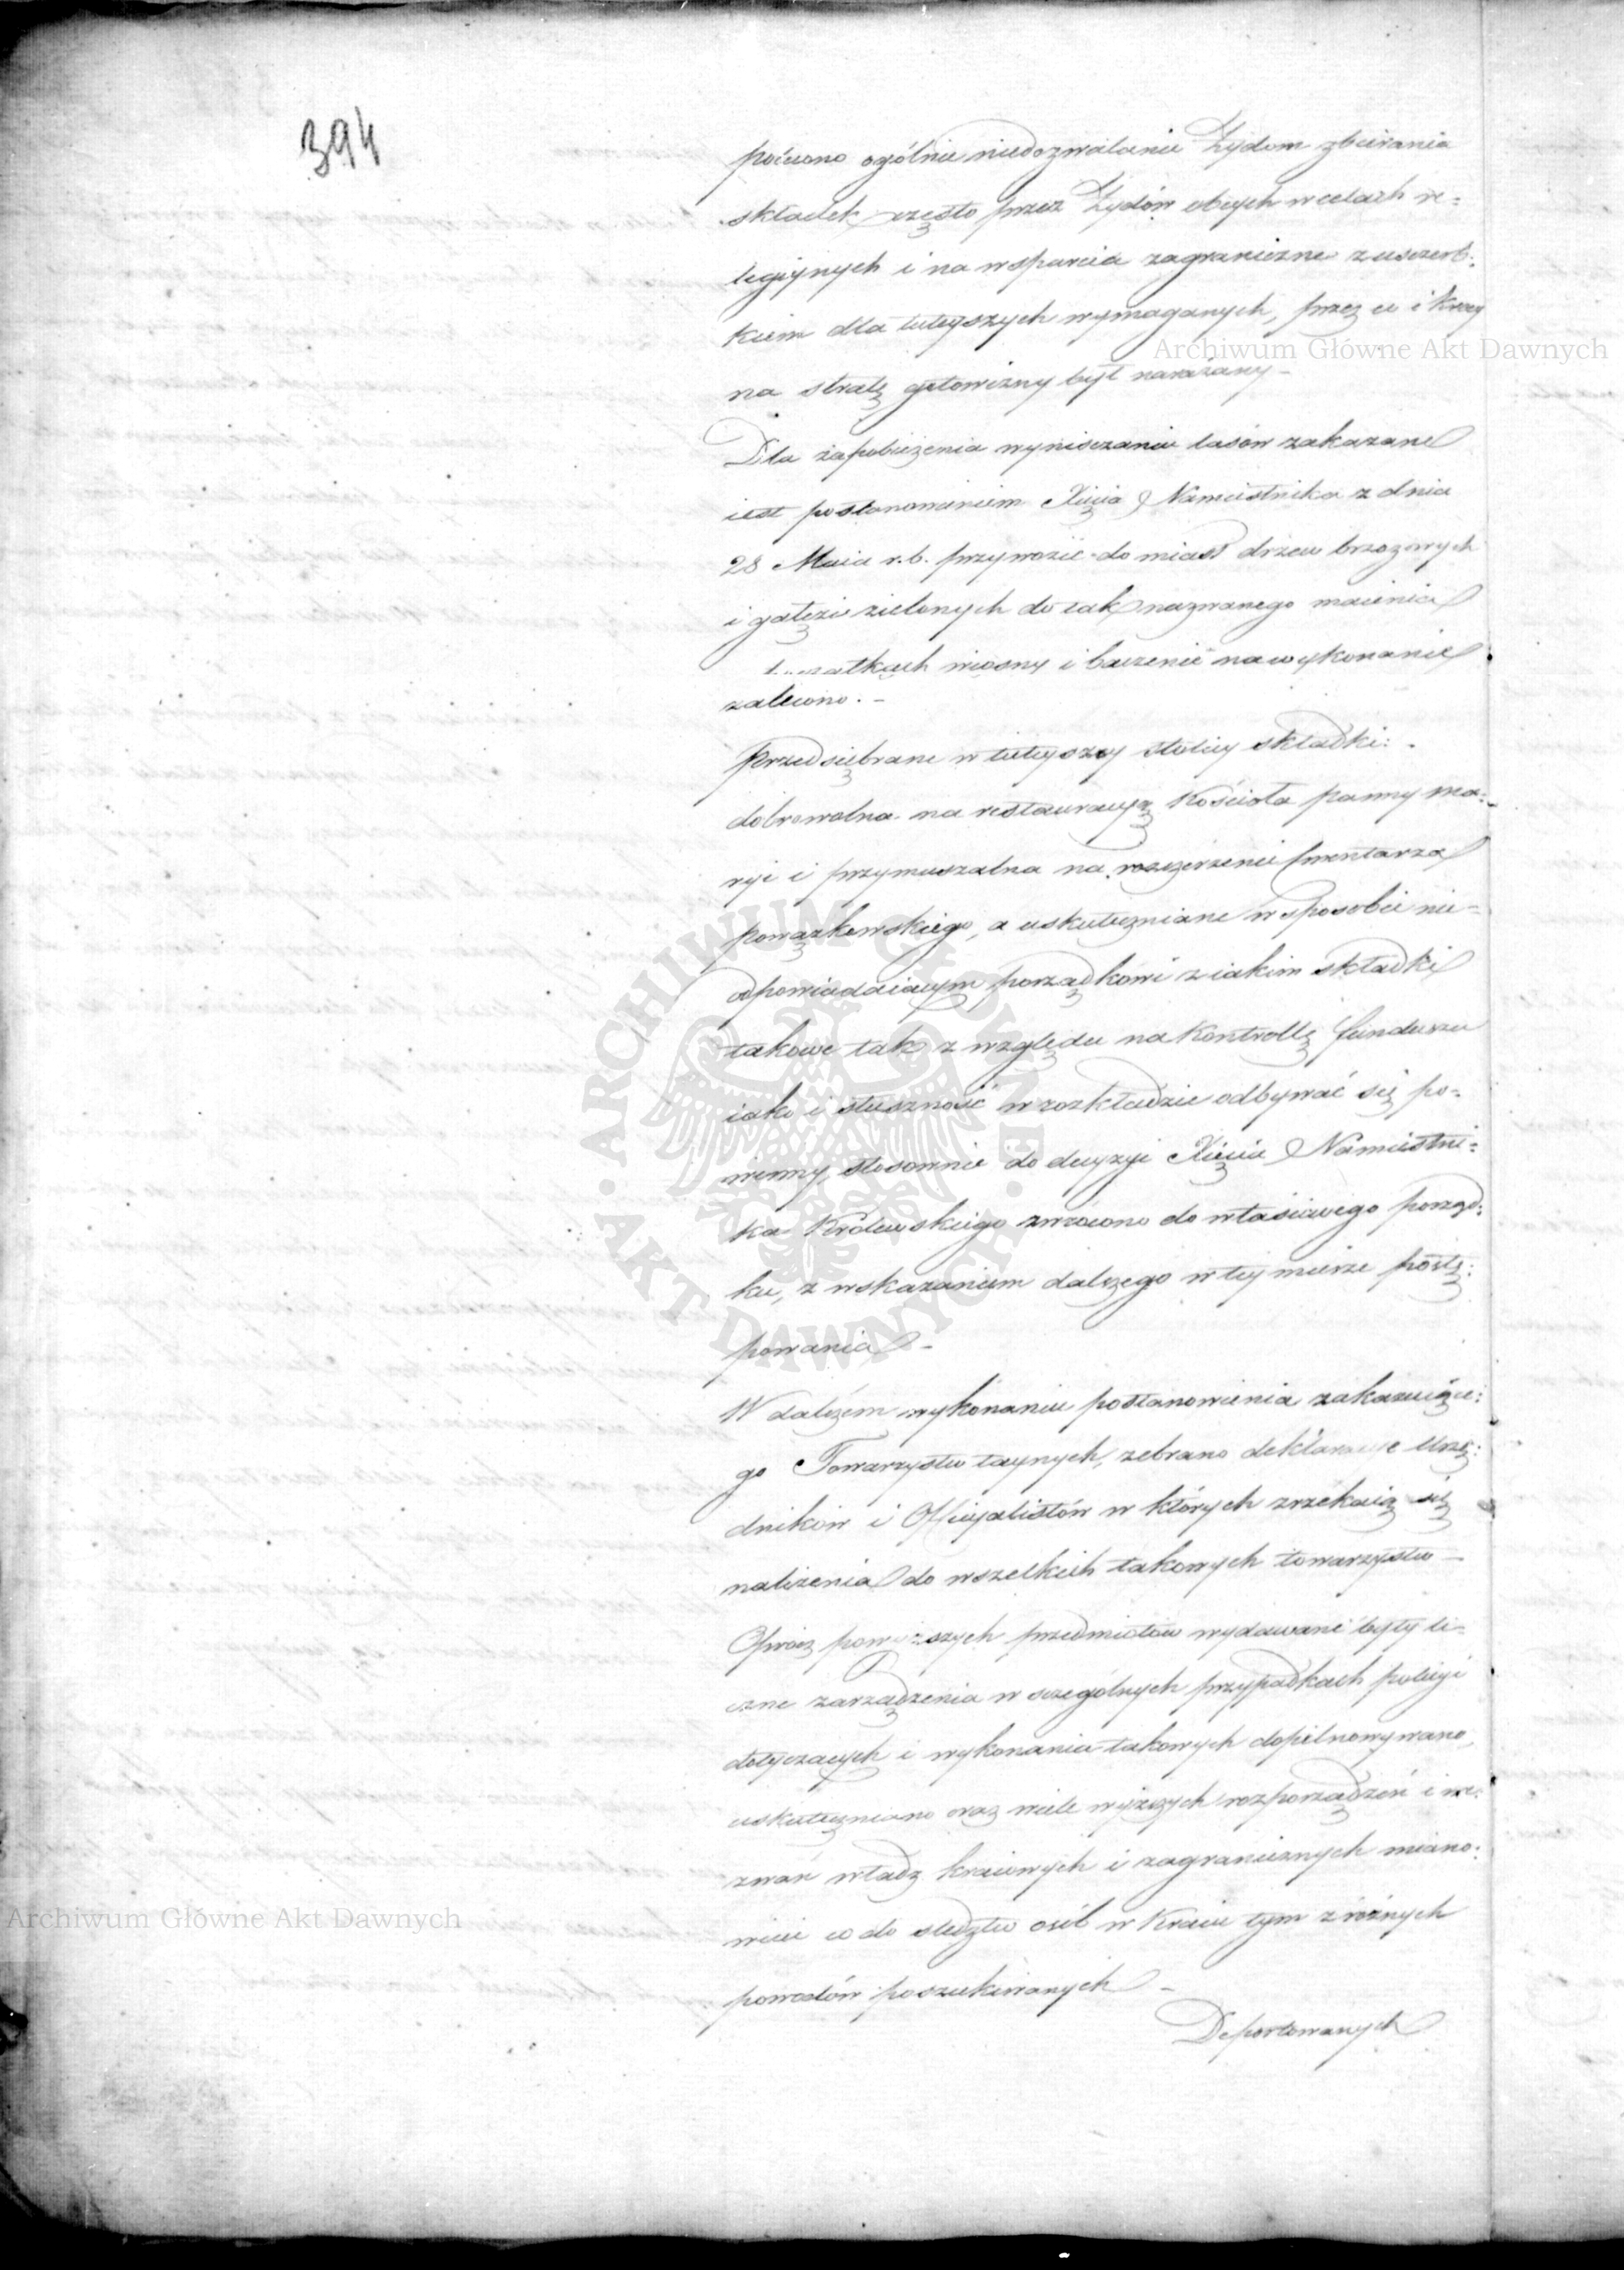 394
pocono ogólnie niedozwalanie Żydom zbierania
składek często przez Żydów obcych w celach re=
ligiynych i na wsparcia zagraniczne z uszczerb=
kiem dla tuteyszych wymaganych, przez co i kray
na stratę gotowizny był narażany –
Dla zapobieżenia wyniszczaniu lasów zakazane
iest postanowieniem Xięcia Namiestnika z dnia
28 Maia r. b. przywozić do miast drzew brzozowych
i gałęzi zielonych do tak nazwanego maienia
początkach wiosny i baczenie na wykonanie
zalecono. –
Przedsiębrane w tuteyszey stolicy składki: –
dobrowolna na restauracyą Kościoła panny Ma=
ryi i przymuszalna na rozszerzenie Cmentarza
powązkowskiego, a uskuteczniane w sposobie nie=
odpowiadaiącym porządkowi z iakim składki
takowe tak z względu na kontrollę funduszu
iako i słuszność w rozkładzie odbywać się po=
winny, stosownie do decyzyi Xięcia Namiestni=
ka Królewskiego zwrócono do właściwego porząd=
ku, z wskazaniem dalszego w tey mierze postę=
powania –
W dalszem wykonaniu postanowienia zakazuiące=
go Towarzystw taynych, zebrano deklaracye Urzę=
dników i Officyalistów w których zrzekaią się
należenia do wszelkich takowych towarzystw –
Oprócz powyższych przedmiotów wydawane były li=
czne zarządzenia w szczególnych przypadkach policyi
dotyczących i wykonania takowych dopilnowywano,
uskuteczniano oraz wiele wyższych rozporządzeń i we=
zwań władz kraiowych i zagranicznych miano=
wicie co do śledztw osób w Kraiu tym z różnych
powodów poszukiwanych –
Deportowanych
Archiwum Główne Akt Dawnych
Archiwum Główne Akt Dawnych
ARCHIWUM GŁÓWNE · AKT DAWNYCH ·